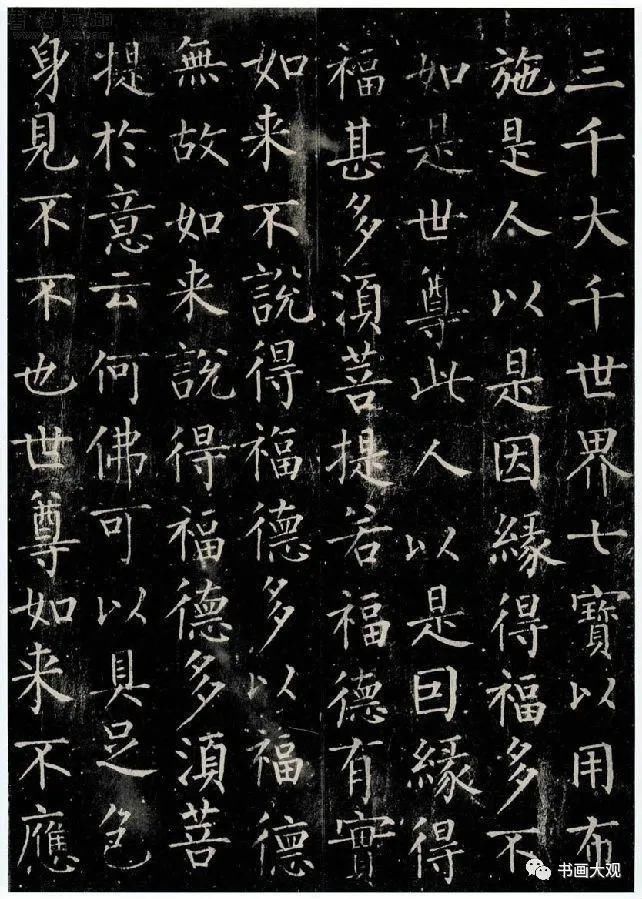 三千大千世界七寶以用布
施是人以是因緣得福多不
如是世尊此人以是因緣得
福甚多湏菩提若福德有實
如来不說得福德多以福德
無故如来說得福德多湏菩
提於意云何佛可以具足色
身見不不也世尊如来不應
书画大观